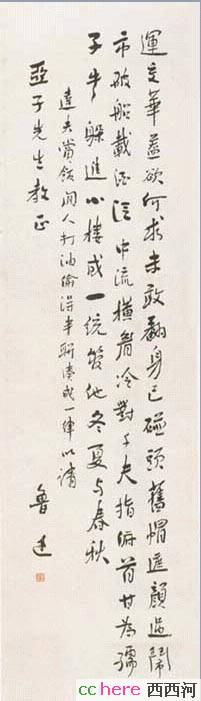 運交華蓋欲何求未敢翻身已碰頭舊帽遮顏過鬧
市破船載酒泛中流橫眉冷對千夫指俯首甘為孺
子牛躲進小樓成一統管他冬夏与春秋
達夫賞飯閒人打油偷得半聯湊成一律以請
亞子先生教正
魯迅
cchere 西西河